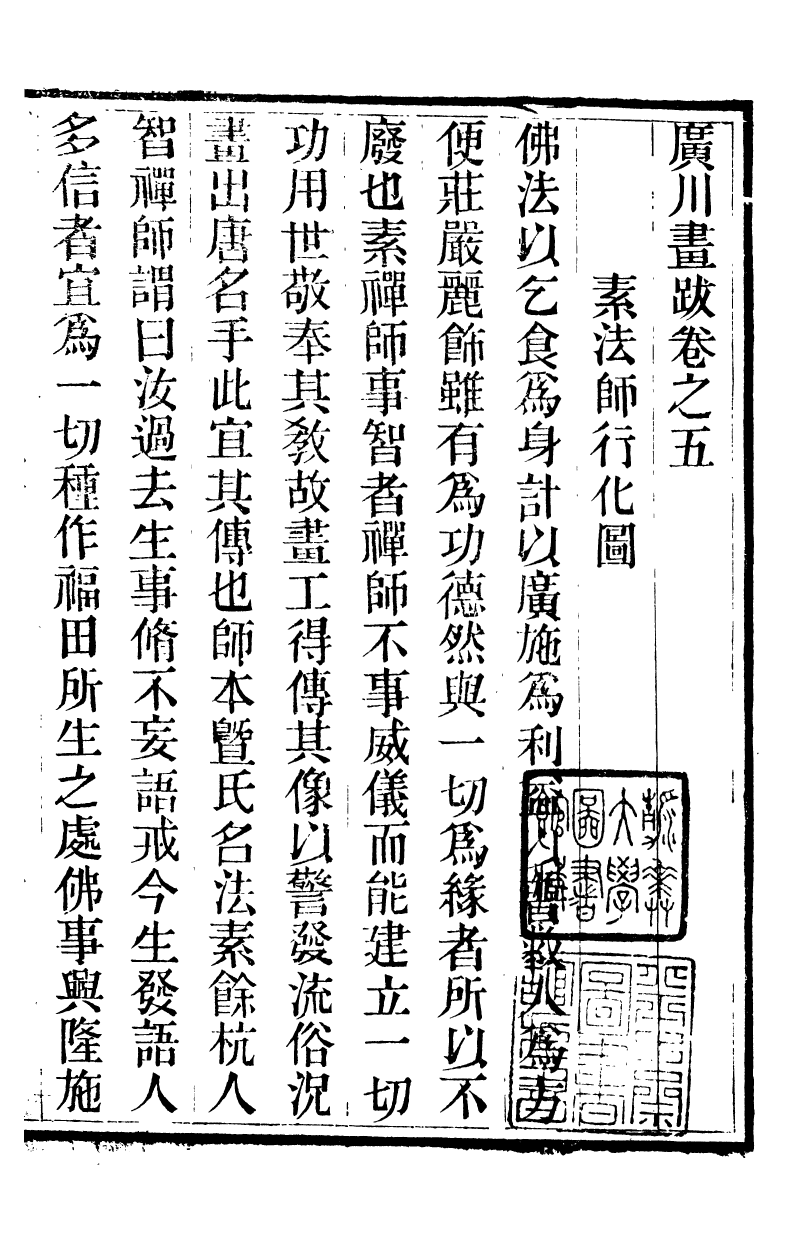 廣川畫跋卷之五
素法師行化圖
佛法以乞食爲身計以廣施爲利益以普救人爲方
便莊嚴麗飾雖有爲功德然與一切爲緣者所以不
廢也素禪師事智者禪師不事威儀而能建立一切
功用世敬奉其教故畫工得傳其像以警發流俗況
畫出唐名手此宜其傳也師本暨氏名法素餘杭人
智禪師謂曰汝過去生事脩不妄語戒今生發語人
多信者宜爲一切種作福田所生之處佛事興隆施
大學
圖書